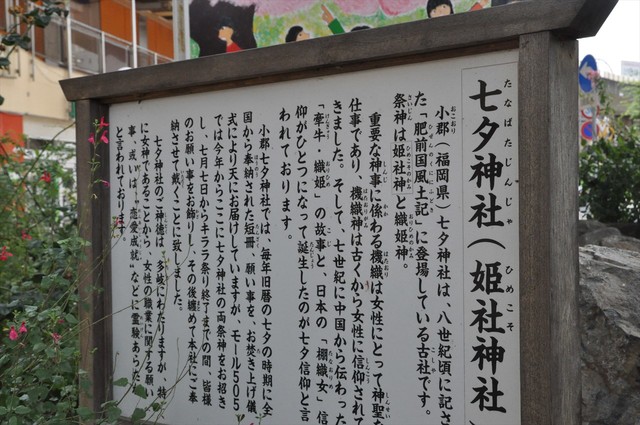 七夕神社(姫社神社)
たなばたじんじゃ ひめこそ
小郡(福岡県)七夕神社は、八世紀頃に記さ
れた「肥前国風土記」に登場している古社です。
祭神は姫社神と織姫神。
重要な神事に係わる機織は女性にとって神聖な
仕事であり、機織神は古くから女性に信仰されて
きました。そして、七世紀に中国から伝わった
「牽牛・織姫」の故事と、日本の「棚織女」信
仰がひとつになって誕生したのが七夕信仰と言
われております。
小郡七夕神社では、毎年旧暦の七夕の時期に全
国から奉納された短冊、願い事を、お焚き上げ儀
式により天にお届けしていますが、モール505
では今年からここに七夕神社の両祭神をお招き
し、七月七日からキララ祭り終了までの間、皆様
のお願い事をお飾りし、その後纏めて本社にご奉
納させて戴くことに致しました。
七夕神社のご神徳は、多岐にわたりますが、特
に女神であることから、女性の職業に関する願い
事、或いは、"恋愛成就"などに霊験あらた
と言われております。